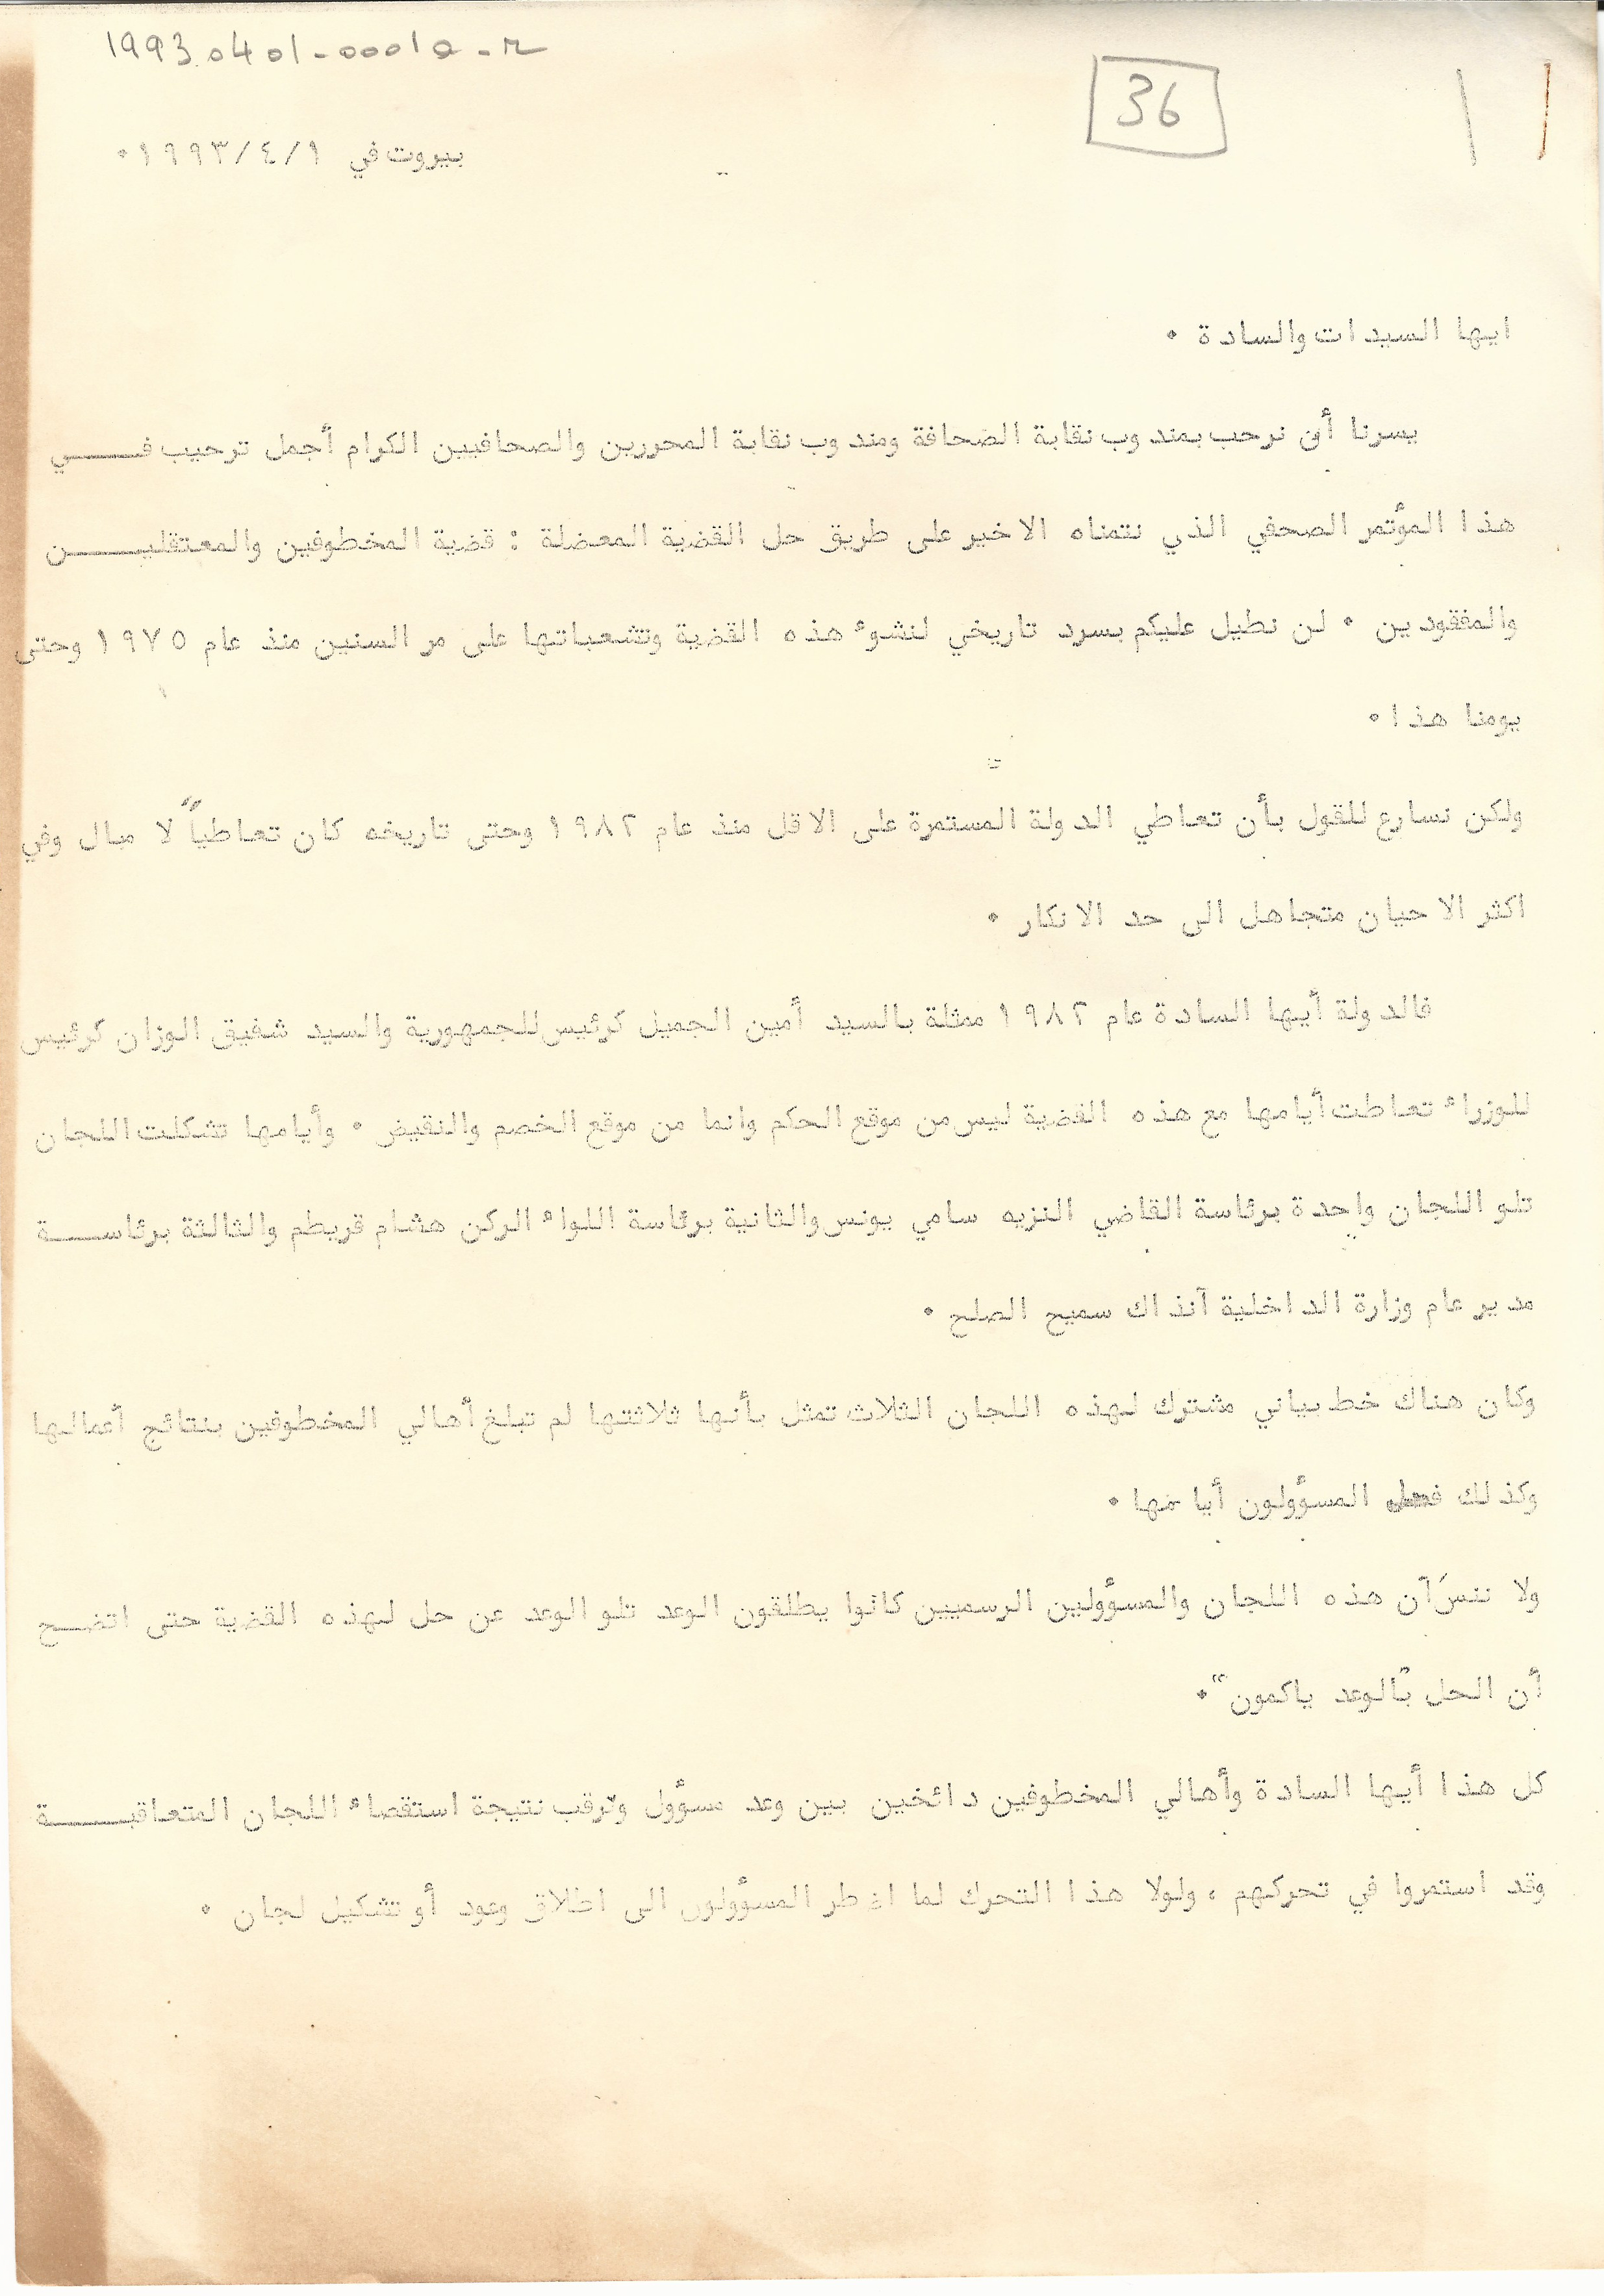 19930401-0001a-r
36
بيروت في ١/٤/١٩٩٣٠
ايها السيدات والسادة ٠
يسرنا أن نرحب بمندوب نقابة الصحافة ومندوب نقابة المحررين والصحافيين الكرام أجمل ترحيب فـــي
هذا المؤتمر الصحفي الذي نتمناه الاخير على طريق حل القضية المعضلة : قضية المخطوفين والمعتقليـــن
والمفقودين ٠ لن نطيل عليكم بسرد تاريخي لنشوء هذه القضية وتشعباتها على مر السنين منذ عام ١٩٧٥ وحتى
يومنا هذا ٠
ولكن نسارع للقول بأن تعاطي الدولة المستمرة على الاقل منذ عام ١٩٨٢ وحتى تاريخه كان تعاطياً لا مبال وفي
اكثر الاحيان متجاهل الى حد الانكار ٠
فالدولة أيها السادة عام ١٩٨٢ ممثلة بالسيد أمين الجميل كرئيس للجمهورية والسيد شفيق الوزان كرئيس
للوزراء تعاطت أيامها مع هذه القضية ليس من موقع الحكم وانما من موقع الخصم والنقيض ٠ وأيامها تشكلت اللجان
تلو اللجان واحدة برئاسة القاضي النزيه سامي يونس والثانية برئاسة اللواء الركن هشام قريطم والثالثة برئاســـة
مدير عام وزارة الداخلية آنذاك سميح الصلح ٠
وكان هناك خط بياني مشترك لهذه اللجان الثلاث تمثل بأنها ثلاثتها لم تبلغ أهالي المخطوفين بنتائج أعمالها
وكذلك فعل المسؤولون أيامها ٠
ولا ننسَ أن هذه اللجان والمسؤولين الرسميين كانوا يطلقون الوعد تلو الوعد عن حل لهذه القضية حتى اتضـح
أن الحل "بالوعد ياكمون" ٠
كل هذا أيها السادة وأهالي المخطوفين دائخين بين وعد مسؤول وترقب نتيجة استقصاء اللجان المتعاقبـــة
وقد استمروا في تحركهم ، ولولا هذا التحرك لما اضطر المسؤولون الى اطلاق وعود أو تشكيل لجان ٠